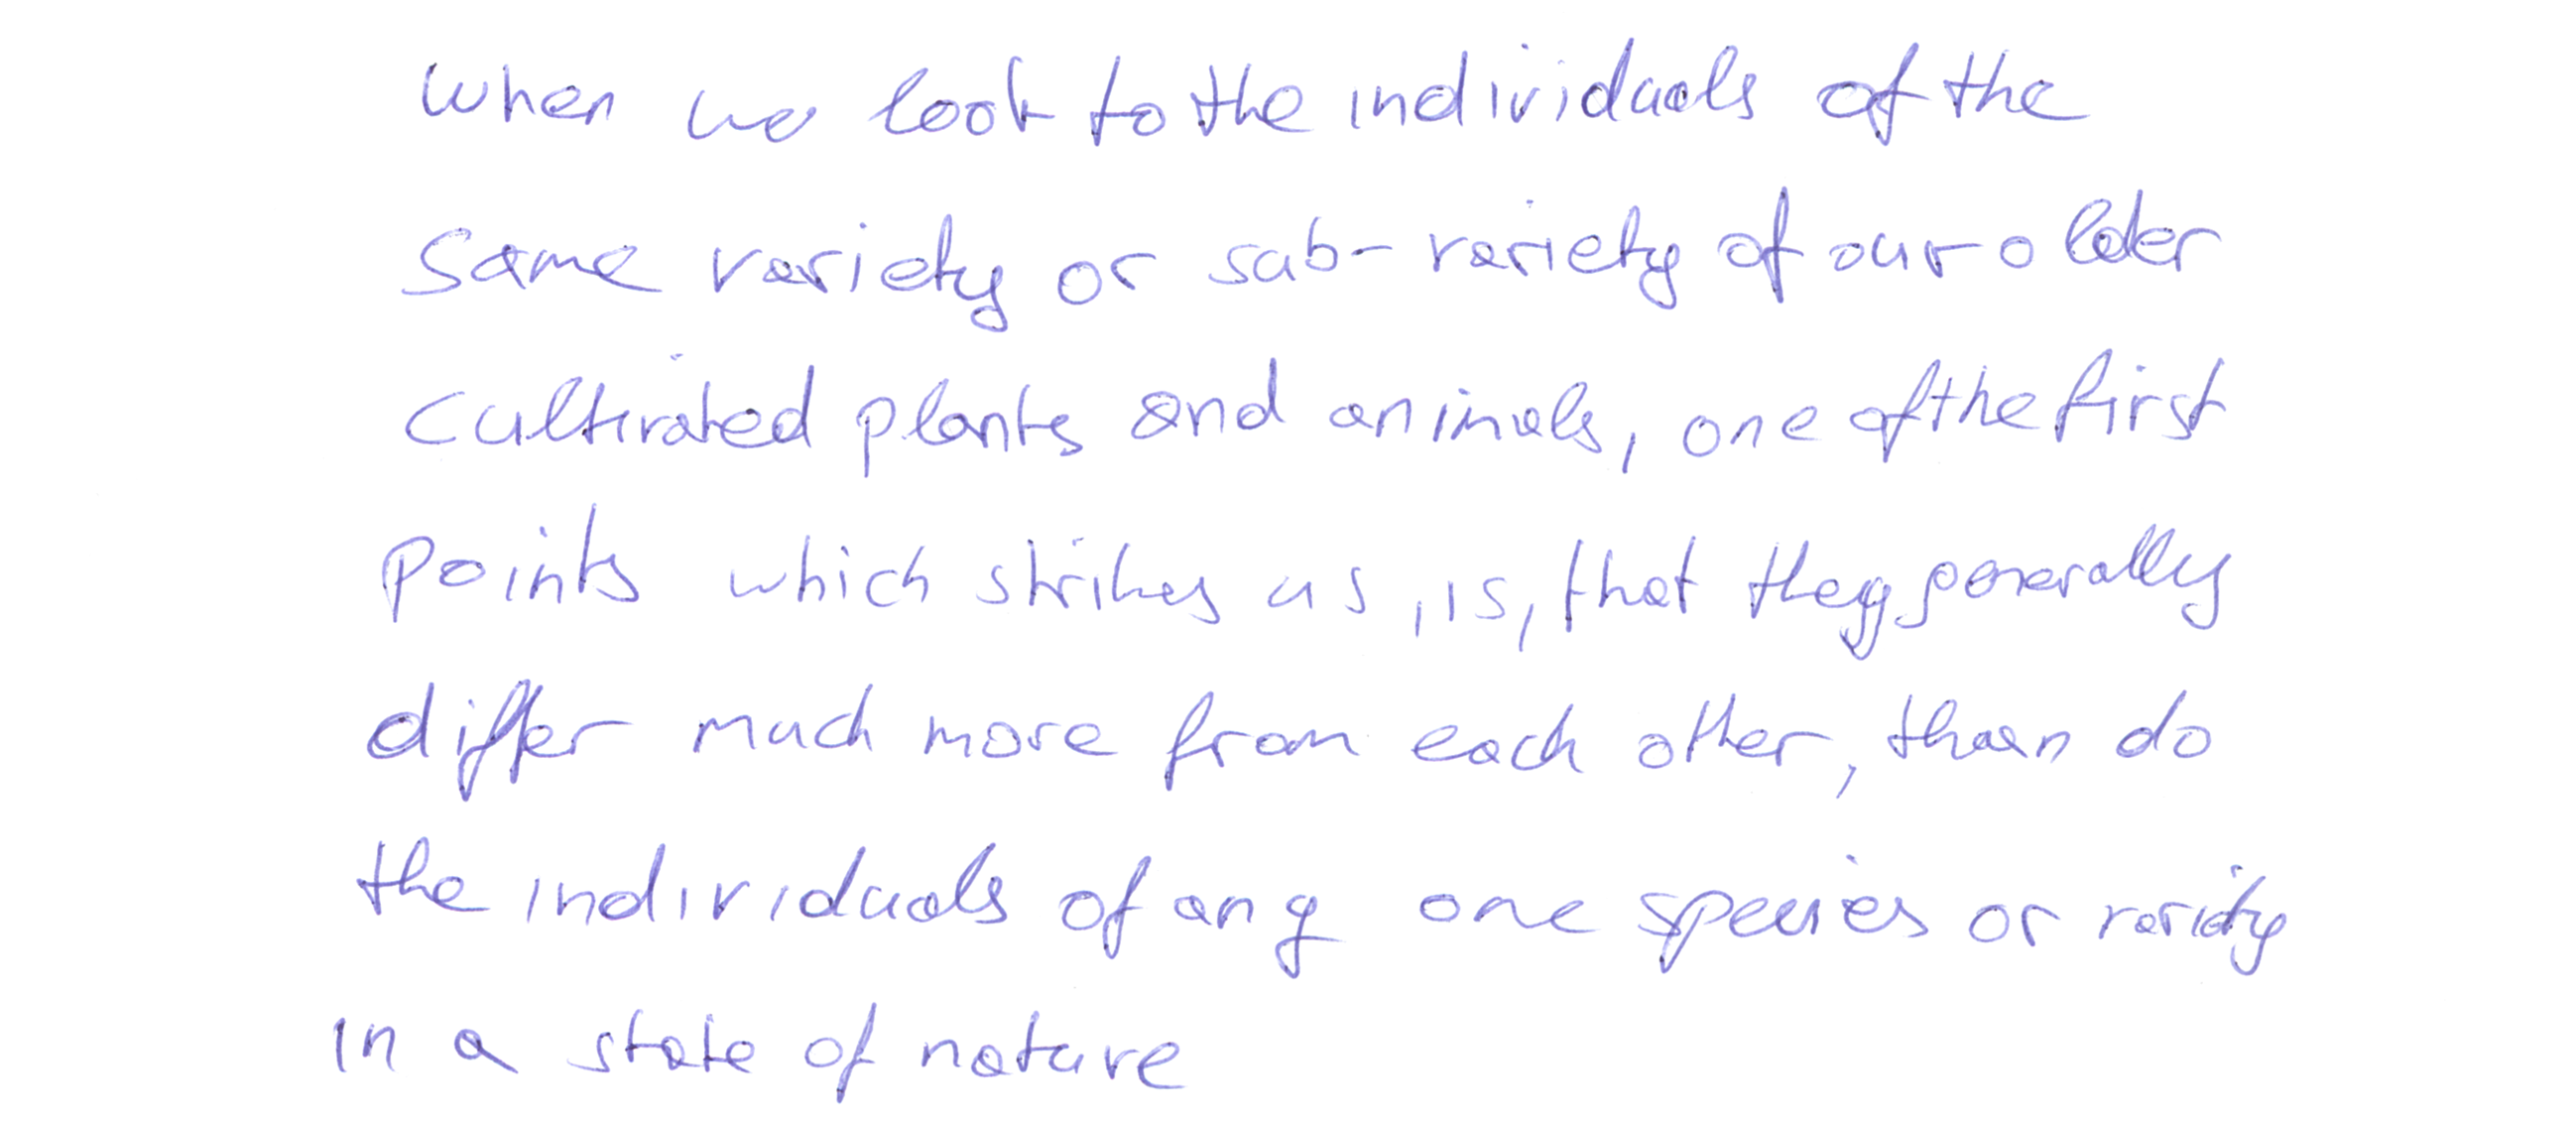 When we look to the individuals of the
same variety or sub-variety of our older
cultivated plants and animals, one of the first
points which strikes us, is, that they generally
differ much more from each other, than do
the individuals of any one species or variety
in a state of nature